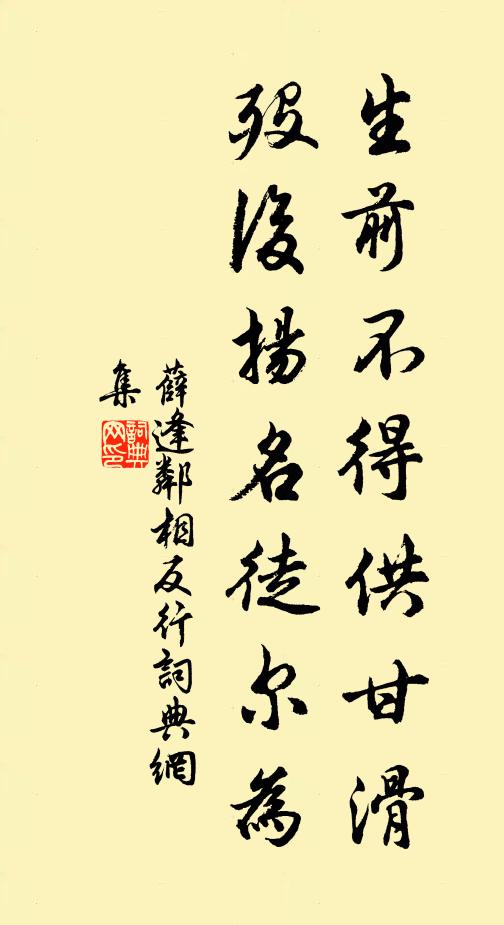 生前不得供甘滑
歿後揚名徒尔為
薛逢鄰相反行詞典網
集
詞典
网印